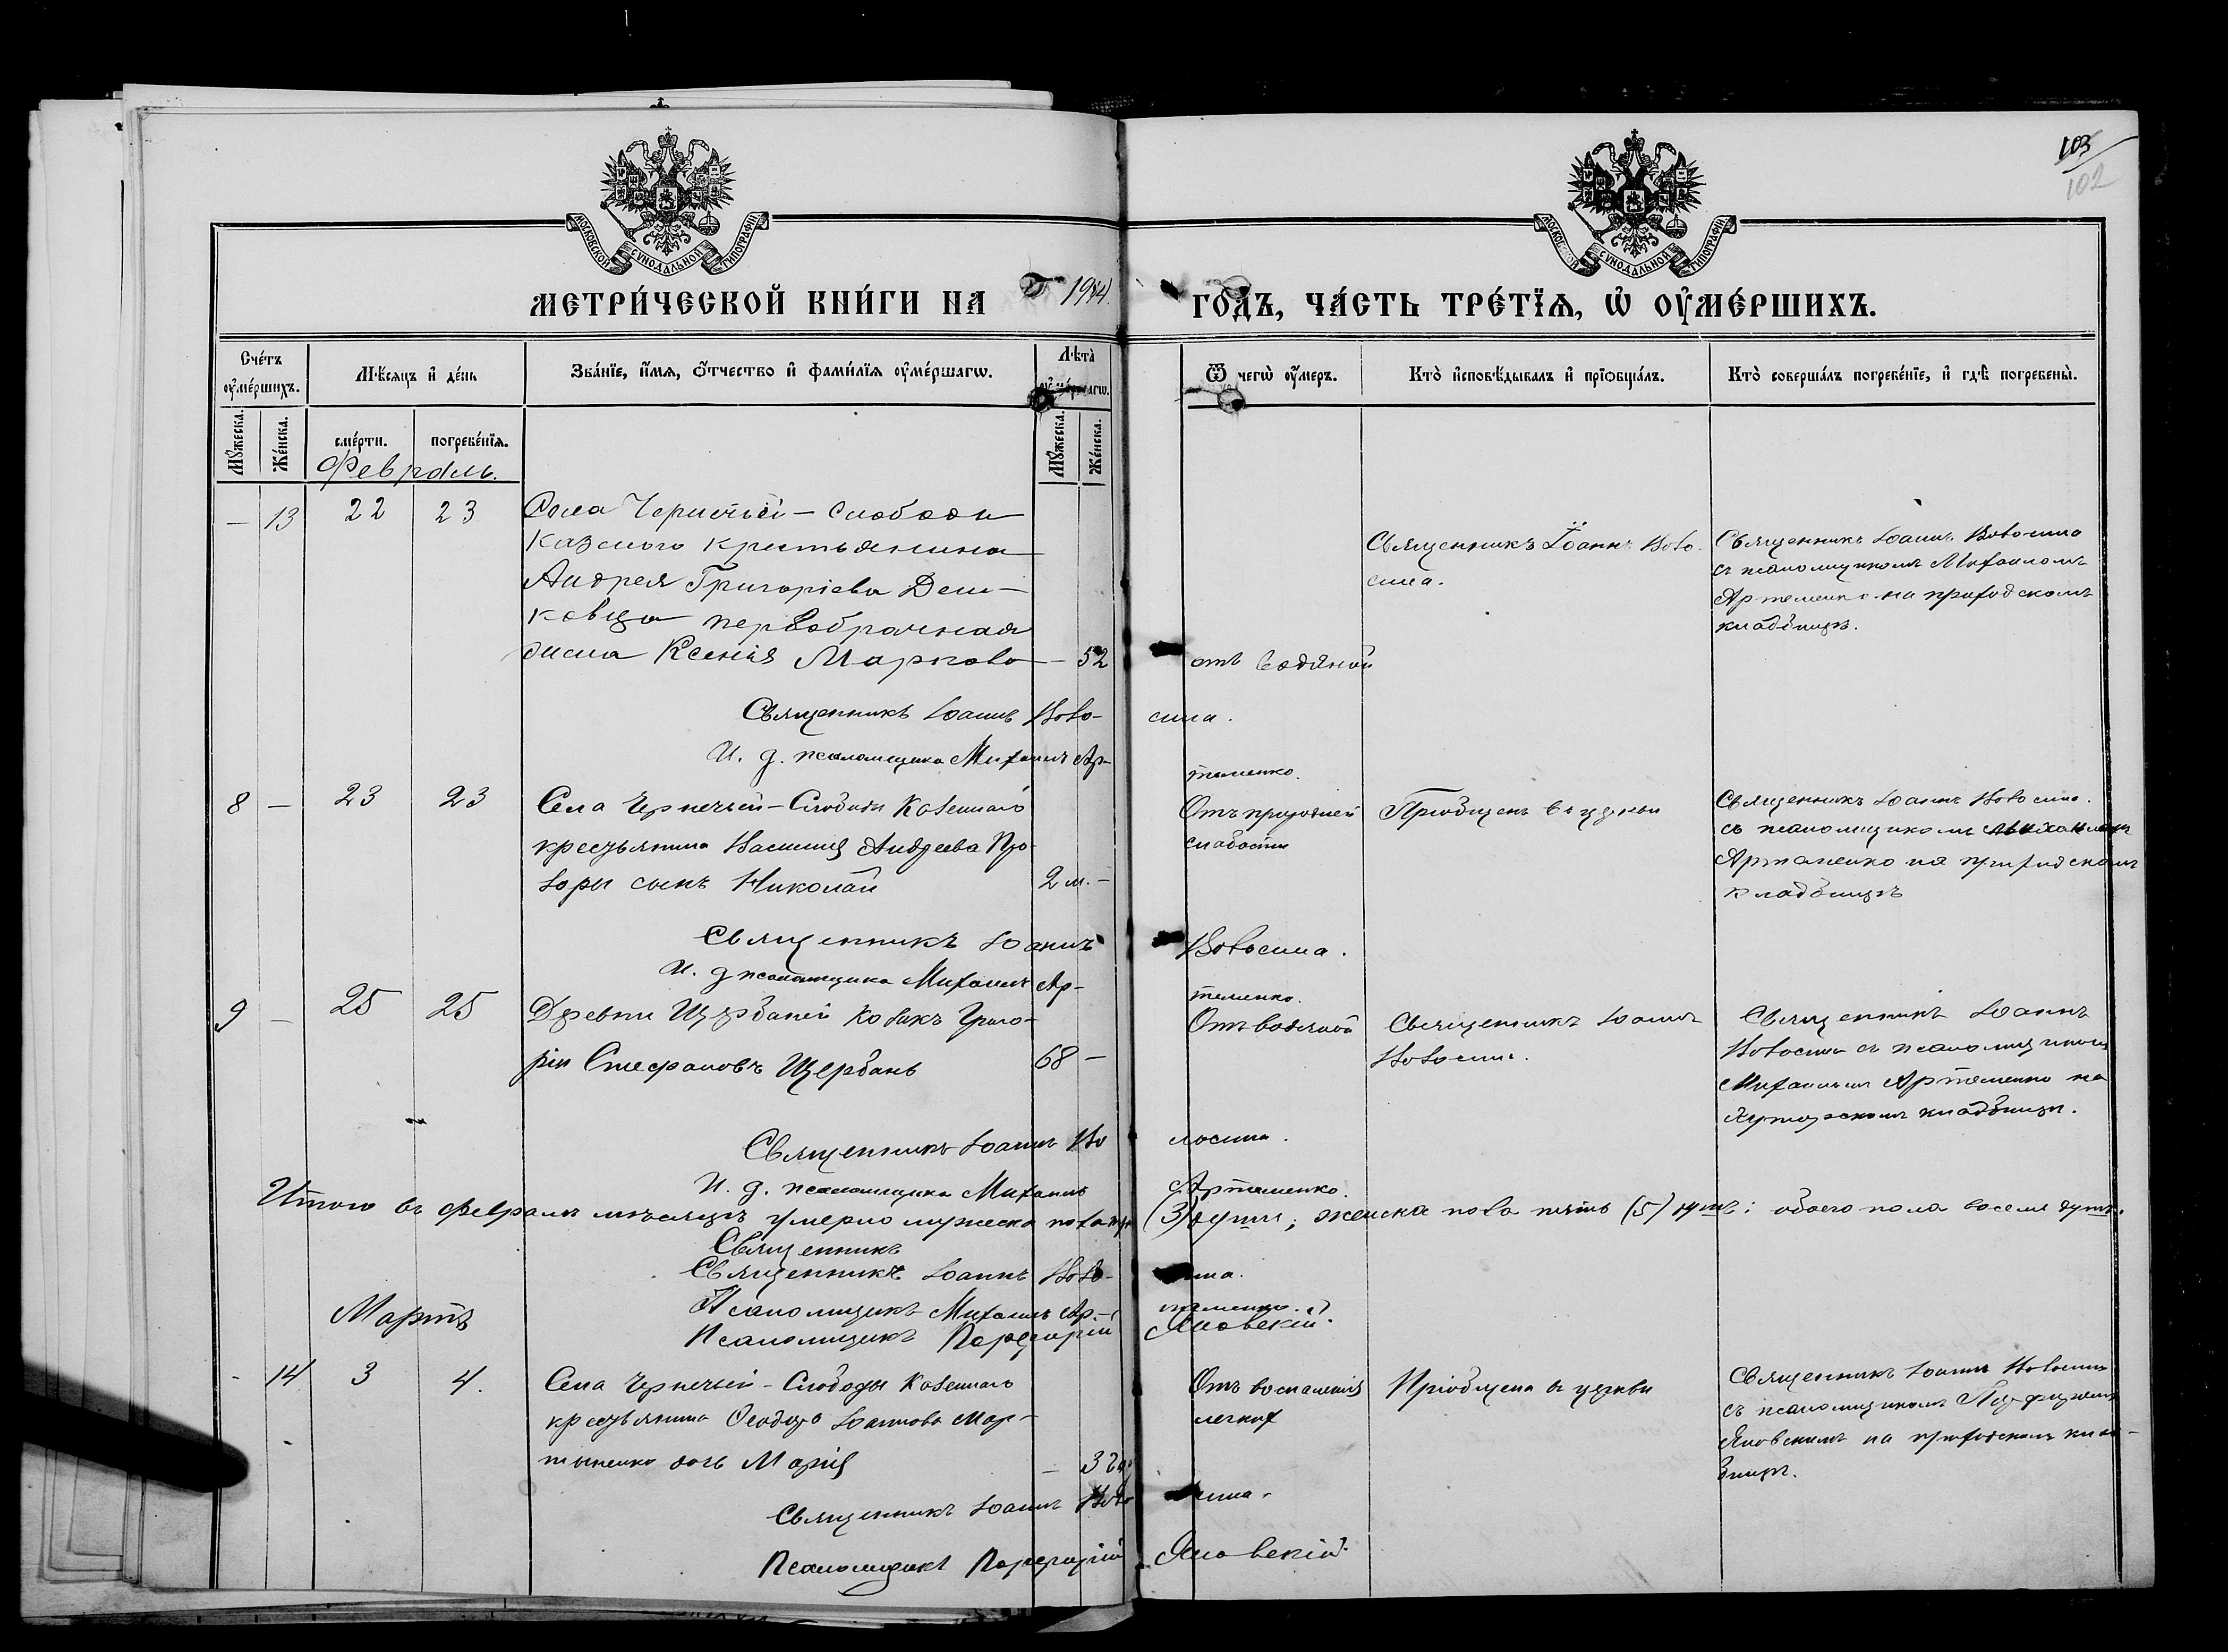 103
102
МОСКОВСКОЙ СѴНОДАЛЬНОЙ ТИПОГРАФІИ
МОСКОВСКОЙ СѴНОДАЛЬНОЙ ТИПОГРАФІИ
МЕТРИ́ЧЕСКОЙ КНИ́ГИ НА 1914. ГО́ДЪ, ЧА́СТЬ ТРЕ́ТЇѦ, Ѡ҆ ОУ҆МЕ́РШИХЪ.
Сче́тъ оу҆ме́ршихъ.
Мѣ́сяцъ и҆ де́нь
Зва́нїе, и҆́мѧ, ѻ҆́тчество и҆ фами́лїѧ оу҆ме́ршагѡ.
Лѣта̀ оу҆ме́ршагѡ.
Ѿ чегѡ̀ оу҆́меръ.
Кто̀ и҆сповѣ́дывалъ и҆ прїѡбща́лъ.
Кто̀ соверша́лъ погребе́нїе, и҆ гдѣ̀ погребены̀.
Мꙋ́жеска.
Же́нска.
сме́рти.
погребе́нїѧ.
Мꙋ́жеска.
Же́нска.
Февраль.
— 13 22 23 Села Чернечьей — Слободы
казеного крестьянина
Андрея Григоріева Деш-
ковца первобрачная
жена Ксенія Маркова — 52
отъ водяной
Священникъ Іоаннъ Воло-
сина.
Священникъ Іоаннъ Волосина
съ псаломщикомъ Михаиломъ
Артеменко на приходскомъ
кладбищѣ.
Священникъ Іоаннъ Воло-
сина.
И. д. псаломщика Михаилъ Ар-
теменко.
8 — 23 23 Села Чернечьей-Слободы казеннаго
крестьянина Василія Андреева
сынъ Николай 2 м. —
Отъ природней
слабости
Пріобщенъ въ церкви
Священникъ Іоаннъ Волосина
съ псаломщикомъ Михаиломъ
Артеменко на приходскомъ
кладбищѣ
Священникъ Іоаннъ
Волосина.
И. д. псаломщика Михаилъ Ар-
теменко.
9 — 25 25 Деревни Щербаней козакъ Григо-
рій Стефановъ Щербань 68 —
Отъ водяной
Священникъ Іоаннъ
Волосина.
Священникъ Іоаннъ
Волосина съ псаломщикомъ
Михаиломъ Артеменко на
хуторскомъ кладбищѣ.
Священникъ Іоаннъ Во
лосина.
И. д. псаломщика Михаилъ
Артеменко.
Итого въ Февралѣ мѣсяцѣ умерло мужеска пола три (3) души; женска пола пять (5) душъ; обоего пола восемь душъ.
Священникъ
Священникъ Іоаннъ Воло-
сина.
Псаломщикъ Михаилъ Ар-
теменко.
Псаломщикъ Порфирій Яновскій.
Мартъ
- 14 3 4. Села Чернечьей-Слободы казеннаго
крестьянина Ѳеодора Іоаннова Мар-
тыненко дочь Марія — 3
Отъ воспаленія
легких
Пріобщена въ церкви
Священникъ Іоаннъ Волосина
съ псаломщикомъ Порфиріемъ
Яновскимъ на приходскомъ клад-
бищѣ.
Священникъ Іоаннъ Воло-
сина.
Псаломщикъ Порфирій Яновскій.